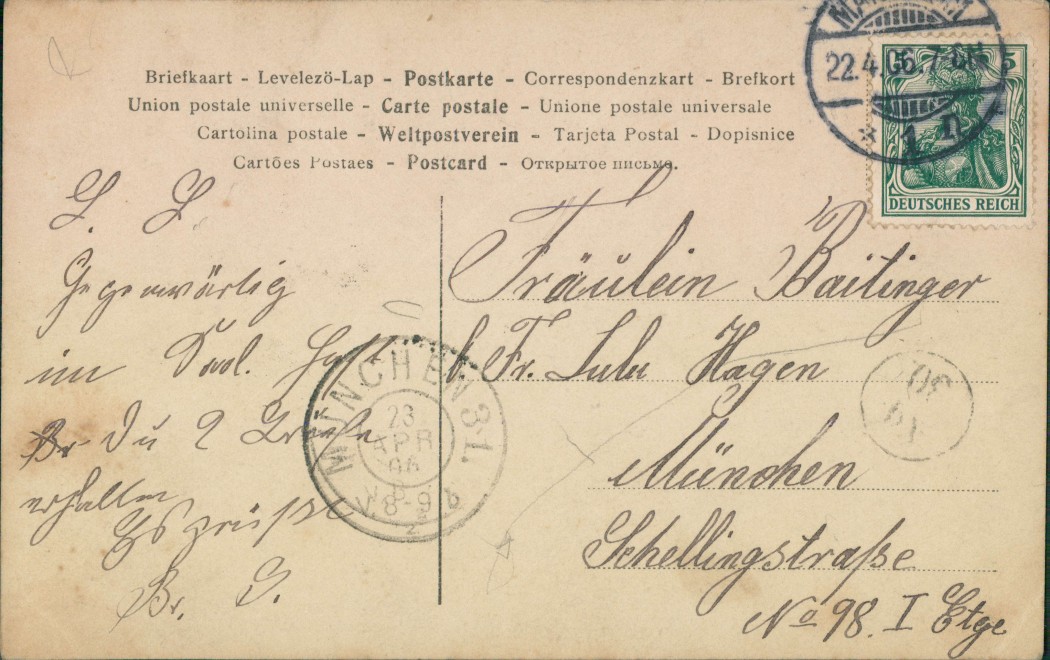 Briefkaart - Levelezö-Lap - Postkarte - Correspondenzkart - Brefkort
Union postale universelle - Carte postale - Unione postale universale
Cartolina postale - Weltpostverein - Tarjeta Postal - Dopisnice
Cartões Postaes - Postcard - Открытое письмо.
22.4.06.7
1 n
5
DEUTSCHES REICH
L. L.
Gegenwärtig
im
Du 2
erhalten
Es grüßt
Br. G.
MÜNCHEN 31.
23
APR
06
V.8-9
Fräulein Baitinger
b. Fr. Lulu Hagen
München
Schellingstraße
No 98. I Etge